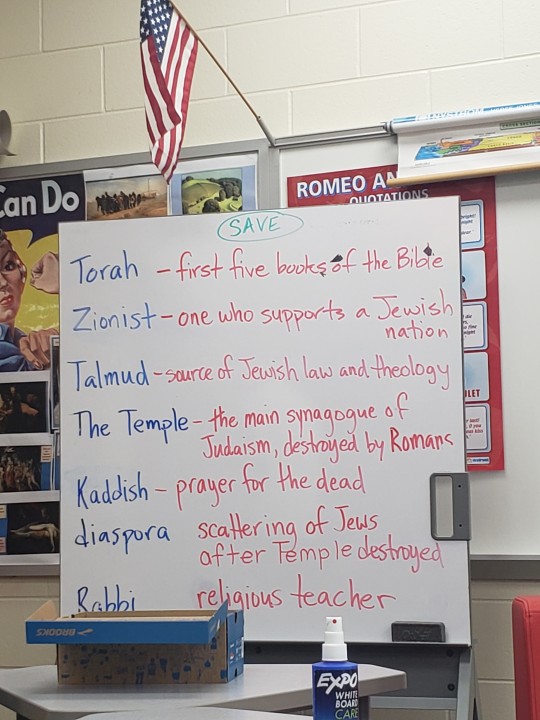 Can Do
ROMEO AN
QUOTATIONS
SAVE
Torah - first five books of the Bible
Zionist - one who supports a Jewish
nation
Talmud - source of Jewish law and theology
The Temple - the main synagogue of
Judaism, destroyed by Romans
Kaddish - prayer for the dead
diaspora scattering of Jews
after Temple destroyed
Rabbi religious teacher
BROOKS
EXPO
WHITE
BOARD
CARE